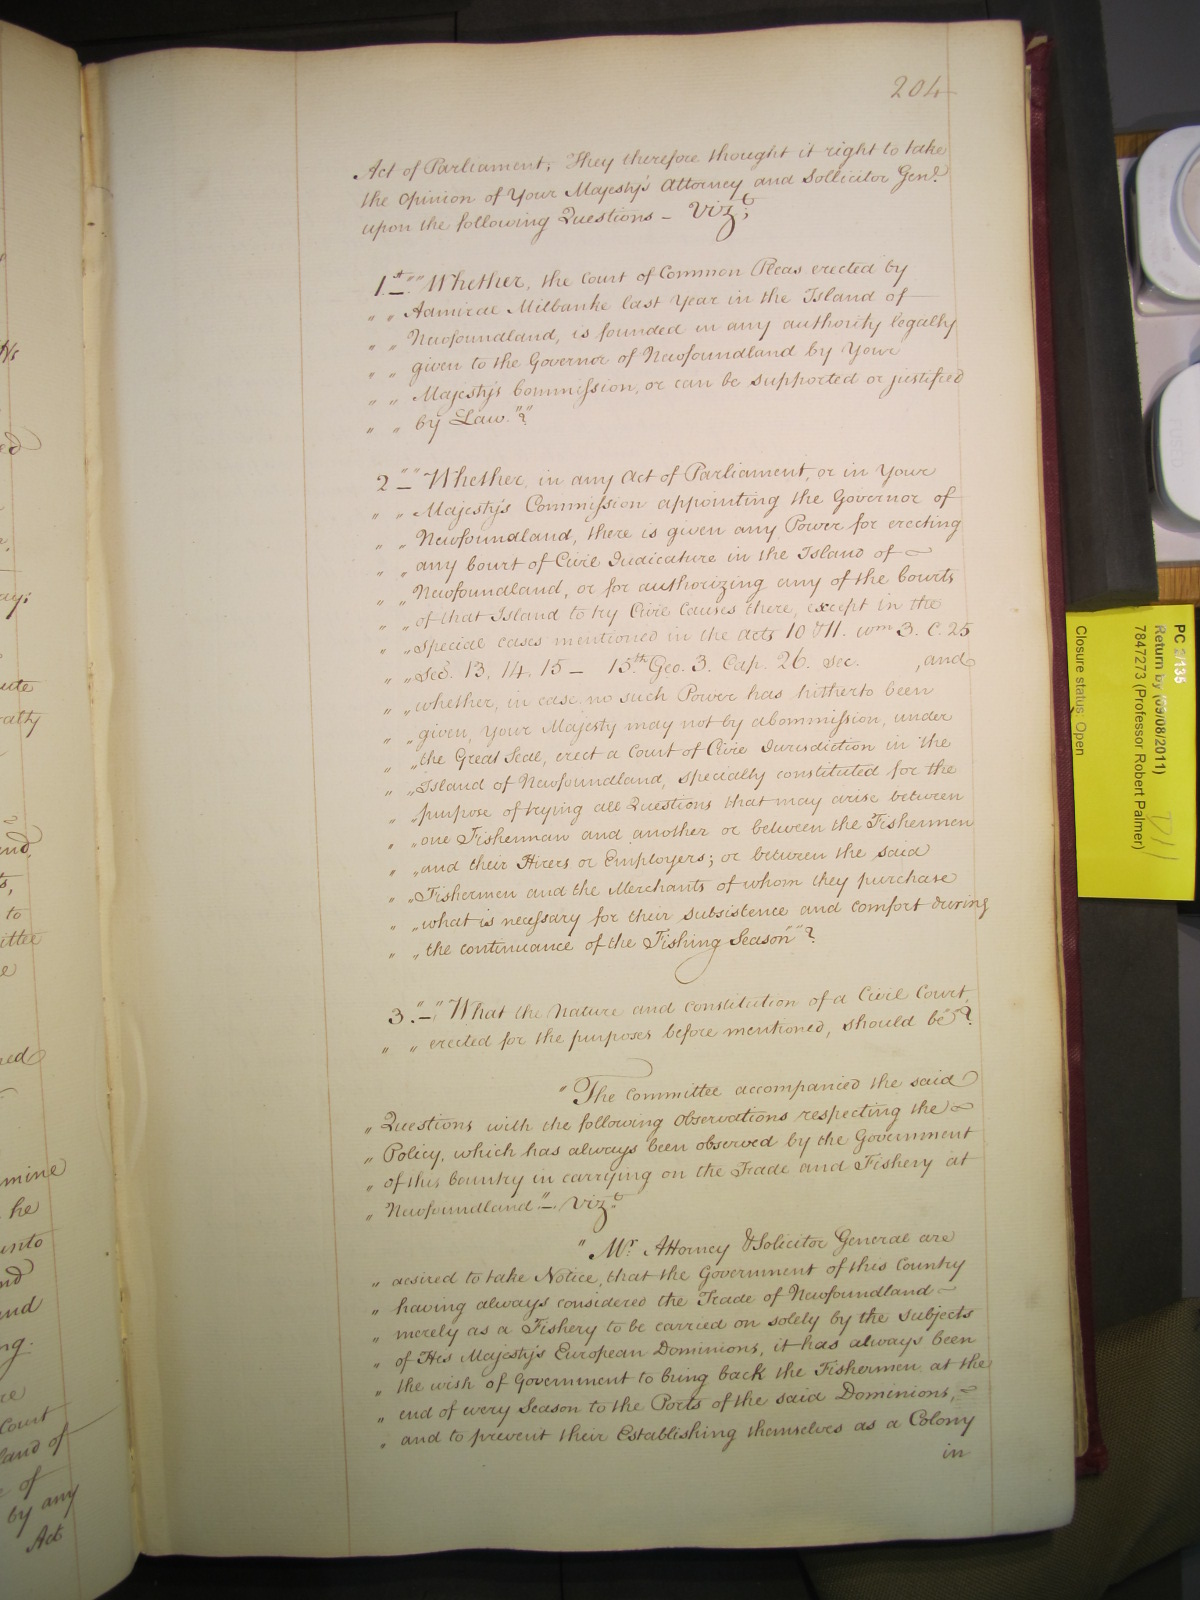 204
Act of Parliament; They therefore thought it right to take
the Opinion of Your Majesty's Attorney and Sollicitor Genl.
upon the following Questions – Vizt;
1st. "" Whether, the Court of Common Pleas erected by
" " Admiral Milbanke last Year in the Island of
" " Newfoundland, is founded in any authority legally
" " given to the Governor of Newfoundland by Your
" " Majesty's Commission, or can be supported or justified
" " by Law." "?
2 – "" Whether, in any Act of Parliament, or in Your
" " Majesty's Commission appointing the Governor of
" " Newfoundland, there is given any Power for erecting
" " any Court of Civil Judicature in the Island of
" " Newfoundland, or for authorizing any of the Courts
" " of that Island to try Civil Causes there, except in the
" " special cases mentioned in the Acts 10 & 11. Wm 3. C. 25
" " Sec. 13, 14. 15 – 15th Geo. 3. Cap. 26. Sec. , and
" " whether, in case no such Power has hitherto been
" " given, Your Majesty may not by a Commission, under
" " the Great Seal, erect a Court of Civil Jurisdiction in the
" " Island of Newfoundland, specially constituted for the
" " purpose of trying all Questions that may arise between
" " one Fisherman and another or between the Fishermen
" " and their Hirers or Employers; or between the said
" " Fishermen and the Merchants of whom they purchase
" " what is necessary for their subsistence and comfort during
" " the continuance of the Fishing Season" "?
3. – "" What the Nature and constitution of a Civil Court,
" " erected for the purposes before mentioned, should be" "?
" The Committee accompanied the said
" Questions with the following Observations respecting the
" Policy, which has always been observed by the Government
" of this Country in carrying on the Trade and Fishery at
" Newfoundland" – Vizt.
" Mr. Attorney & Solicitor General are
" desired to take Notice, that the Government of this Country
" having always considered the Trade of Newfoundland
" merely as a Fishery to be carried on solely by the Subjects
" of His Majesty's European Dominions, it has always been
" the wish of Government to bring back the Fishermen at the
" end of every Season to the Ports of the said Dominions,
" and to prevent their Establishing themselves as a Colony
in
PC 2/135
Return by (09/08/2011)
7847273 (Professor Robert Palmer)
Closure status: Open
mine
he
unto
and
Court
land of
of
by any
Act